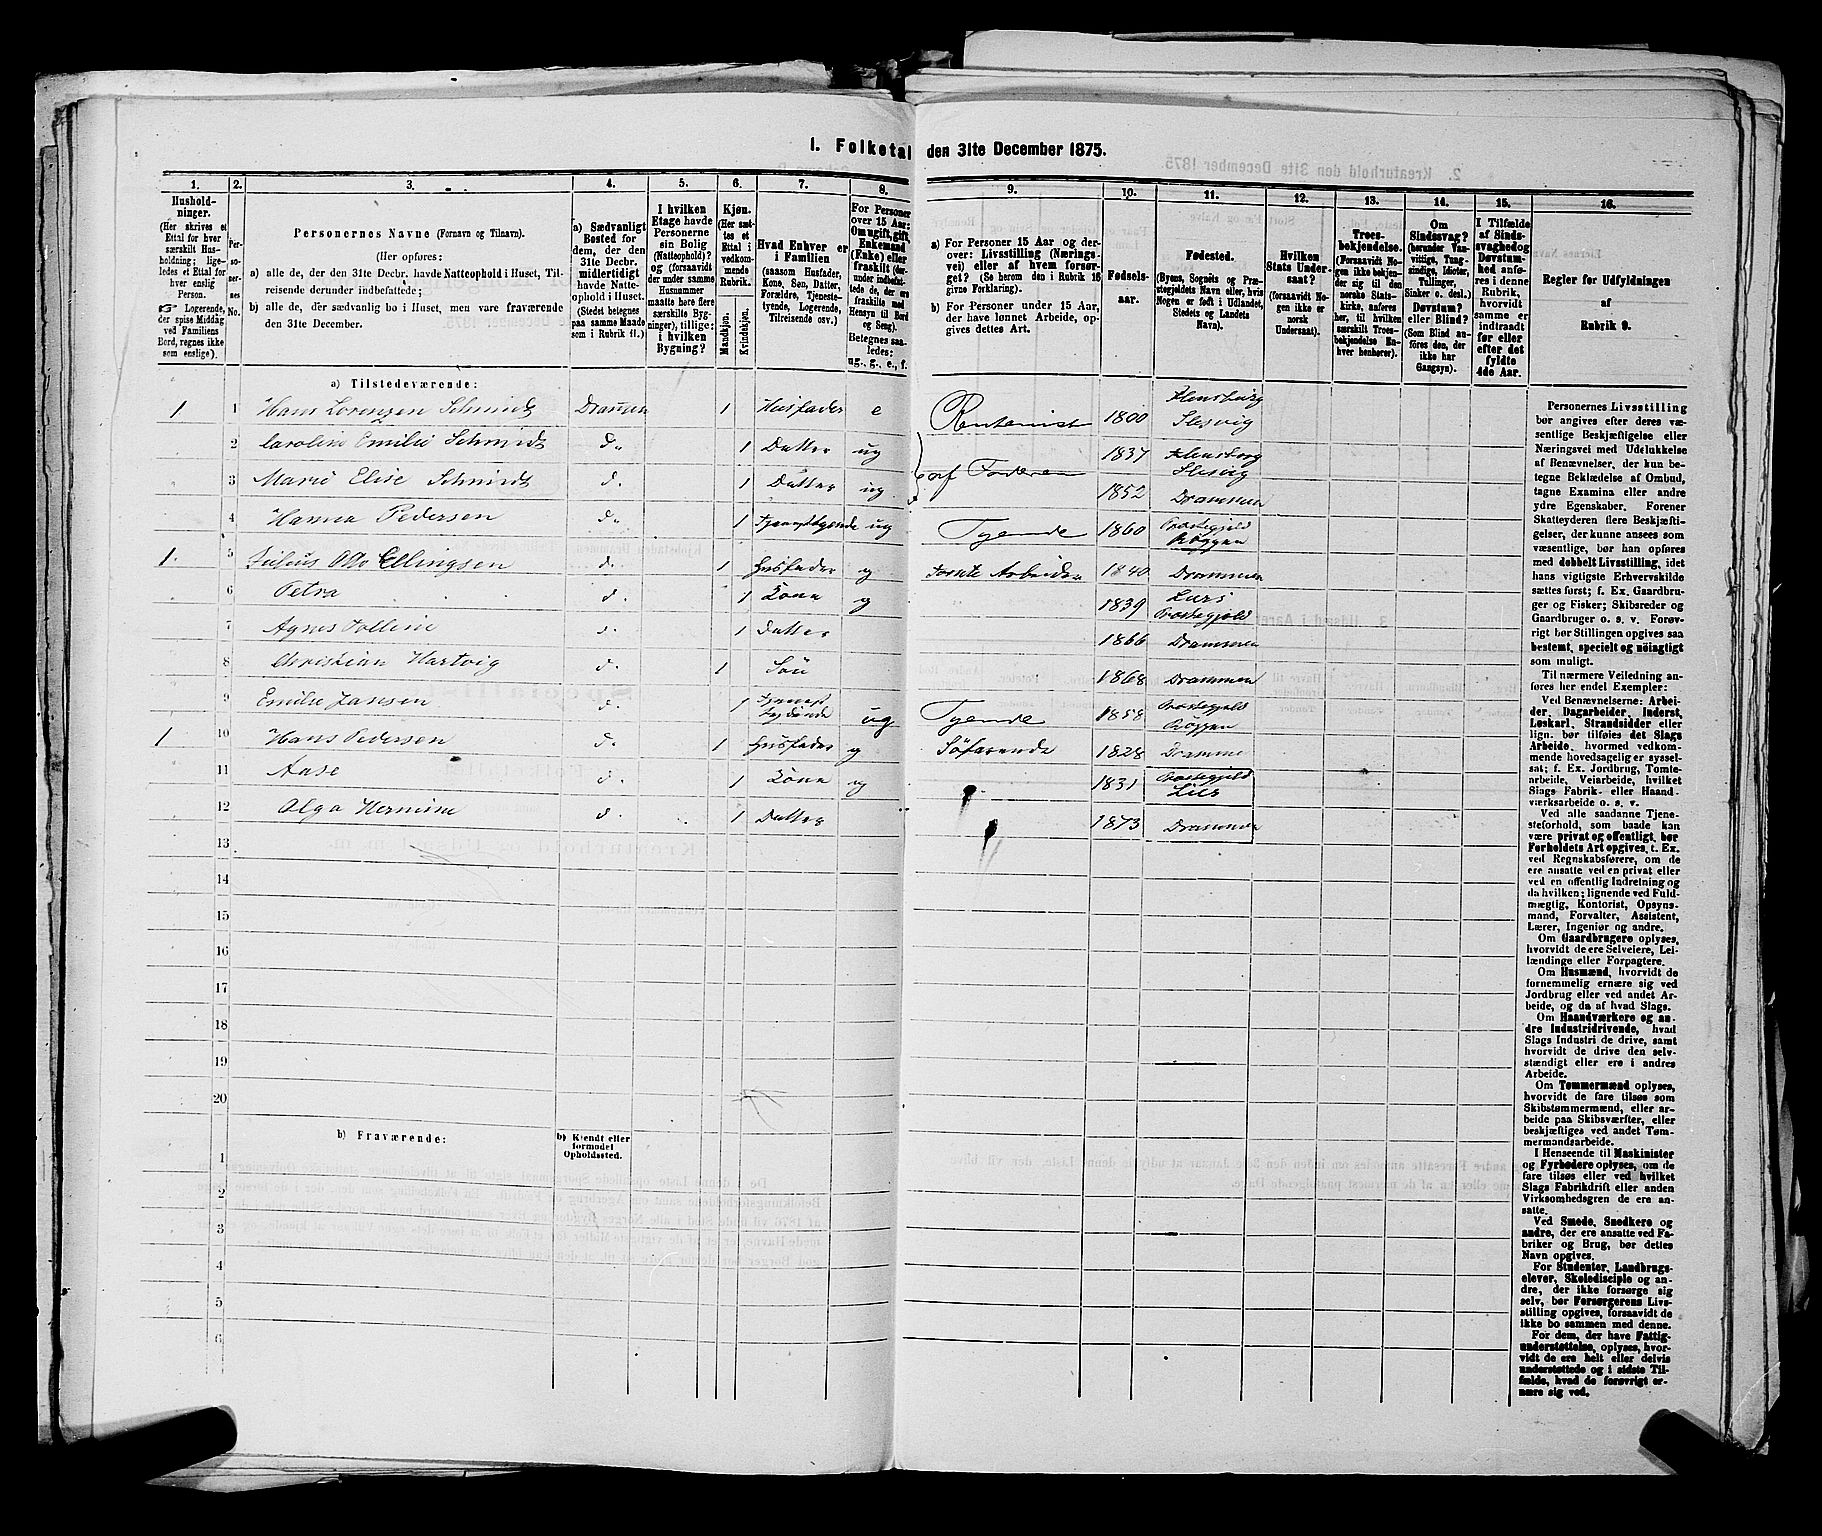 1. Folketal den 31te December 1875.
1. 2. 3. 4. 5. 6. 7. 8. 9. 10. 11. 12. 13. 14. 15. 16.
Hushold-
ninger.
(Her skrives et
Ettal for hver
særskilt Hus-
holdning; lige-
ledes et Ettal for
hver enslig
Person.
☞ Logerende,
der spise Middag
ved Familiens
Bord, regnes ikke
som enslige).
Per-
so-
ner-
nes
No.
Personernes Navne (Fornavn og Tilnavn).
(Her opføres:
a) alle de, der den 31te Decbr. havde Natteophold i Huset, Til-
reisende derunder indbefattede;
b) alle de, der sædvanlig bo i Huset, men vare fraværende
den 31te December.
a) Sædvanligt
Bosted for
dem, der den
31te Decbr.
midlertidigt
havde Natte-
ophold i Huset.
(Stedet betegnes
paa samme Maade
som i Rubrik 11.)
I hvilken
Etage havde
Personerne
sin Bolig
(Natteophold)?
og (forsaavidt
der under samme
Husnummer
maatte høre flere
særskilte Byg-
ninger), tillige:
i hvilken
Bygning?
Kjøn.
(Her sæt-
tes et
Ettal i
vedkom-
mende
Rubrik.
Mandkjøn.
Kvindekjøn.
Hvad Enhver er
i Familien
(saasom Husfader,
Kone, Søn, Datter,
Forældre, Tjeneste-
tyende, Logerende,
Tilreisende osv.)
For Personer
over 15 Aar:
Om ugift, gift,
Enkemand
(Enke) eller
fraskilt (der-
under indbefat-
tede de, der ere
fraskilte med
Hensyn til Bord
og Seng).
Betegnes saa-
ledes:
ug., g., e., f.
a) For Personer 15 Aar og der-
over: Livsstilling (Nærings-
vei) eller af hvem forsør-
get? (Se herom den i Rubrik 16
givne Forklaring).
b) For Personer under 15 Aar,
der have lønnet Arbeide, op-
gives dettes Art.
Fødsels-
aar.
Fødested.
(Byens, Sognets og Præ-
stegjeldets Navn eller, hvis
Nogen er født i Udlandet,
Stedets og Landets
Navn).
Hvilken
Stats Under-
saat?
(forsaavidt No-
gen ikke er
norsk
Undersaat).
Troes-
bekjendelse.
(Forsaavidt No-
gen ikke bekjen-
der sig til den
norske Stats-
kirke, anføres
her, til hvilken
særskilt Troes-
bekjendelse En-
hver henhører).
Om
Sindssvag?
(herunder Van-
vittige, Tung-
sindige, Idioter,
Tullinger,
Sinker o. desl.)
Døvstum?
eller Blind?
(Som Blind an-
føres den, der
ikke har
Gangsyn).
I Tilfælde
af Sinds-
svaghed og
Døvstum-
hed anfø-
res i denne
Rubrik,
hvorvidt
samme er
indtraadt
før eller
efter det
fyldte
4de Aar.
Regler for Udfyldningen
af
Rubrik 9.
a) Tilstedeværende:
1 1 Hans Lorenzen Schmidt Drammen 1 Husfader e Rentenist 1800 Flensburg Slesvig
2 Caroline Emilie Schmidt d. 1 Datter ug af Faderen 1837 Flensborg Slesvig
3 Marie Elise Schmidt d. 1 Datter ug 1852 Drammen
4 Hanna Pedersen d. 1 ug Tyende 1860 Præstegjeld Røggen
1. 5 Julius Otto Ellingsen d. 1 Husfader g Tomte Arbeider 1840 Drammen
6 Petra d. 1 Kone g 1839 Præstegjeld
7 Agnes d. 1 Datter 1866 Drammen
8 Christian Hartvig d. 1 Søn 1868 Drammen
9 Emilie Jansen d. 1 ug Tyende 1858 Præstegjeld Røggen
1 10 Hans Pedersen d. 1 Husfader g Søfarende 1828 Dramme
11 Aase d. 1 Kone g 1831 Præstegjeld Lier
12 Olga Hermine d. 1 Datter 1873 Drammen
13
14
15
16
17
18
19
20
b) Fraværende:
b) Kjendt eller
formodet
Opholdssted.
1
2
3
4
5
6
Personernes Livsstilling
bør angives efter deres væ-
sentlige Beskjæftigelse eller
Næringsvei med Udelukkelse
af Benævnelser, der kun be-
tegne Beklædelse af Ombud,
tagne Examina eller andre
ydre Egenskaber. Forener
Skatteyderen flere Beskjæfti-
gelser, der kunne ansees som
væsentlige, bør han opføres
med dobbelt Livsstilling, idet
hans vigtigste Erhvervskilde
sættes først; f. Ex. Gaardbru-
ger og Fisker; Skibsreder og
Gaardbruger o. s. v. Forøv-
rigt bør Stillingen opgives saa
bestemt, specielt og nøiagtigt
som muligt.
Til nærmere Veiledning an-
føres her endel Exempler:
Ved Benævnelserne: Arbei-
der, Dagarbeider, Inderst,
Løskarl, Strandsidder eller
lign. bør tilføies det Slags
Arbeide, hvormed vedkom-
mende hovedsagelig er syssel-
sat; f. Ex. Jordbrug, Tomte-
arbeide, Veiarbeide, hvilket
Slags Fabrik- eller Haand-
værksarbeide o. s. v.
Ved alle saadanne Tjene-
steforhold, som baade kan
være privat og offentligt, bør
Forholdets Art opgives, t. Ex.
ved Regnskabsførere, om de
ere ansatte ved en privat eller
ved en offentlig Indretning og
da hvilken; lignende ved Fuld-
mægtig, Kontorist, Opsyns-
mand, Forvalter, Assistent,
Lærer, Ingeniør og andre.
Om Gaardbrugere oplyses,
hvorvidt de ere Selveiere, Lei-
lændinge eller Forpagtere.
Om Husmænd, hvorvidt de
fornemmelig ernære sig ved
Jordbrug eller ved andet Ar-
beide, og da af hvad Slags.
Om Haandværkere og an-
dre Industridrivende, hvad
Slags Industri de drive, samt
hvorvidt de drive den selv-
stændigt eller ere i andres
Arbeide.
Om Tømmermænd oplyses,
hvorvidt de fare tilsøs som
Skibstømmermænd, eller ar-
beide paa Skibsværfter, eller
beskjæftiges ved andet Tøm-
mermandsarbeide.
I Henseende til Maskinister
og Fyrbødere oplyses, om de
fare tilsøs eller ved hvilket
Slags Fabrikdrift eller anden
Virksomhedsgren de ere an-
satte.
Ved Smede, Snedkere og
andre, der ere ansatte ved Fa-
briker og Brug, bør dettes
Navn opgives.
For Studenter, Landbrugs-
elever, Skoledisciple og an-
dre, der ikke forsørge sig
selv, bør Forsørgerens Livs-
stilling opgives, forsaavidt de
ikke bo sammen med denne.
For dem, der have Fattig-
understøttelse, oplyses, hvor-
vidt de ere helt eller delvis
understøttede og i sidste Til-
fælde, hvad de forøvrigt er-
nære sig ved.